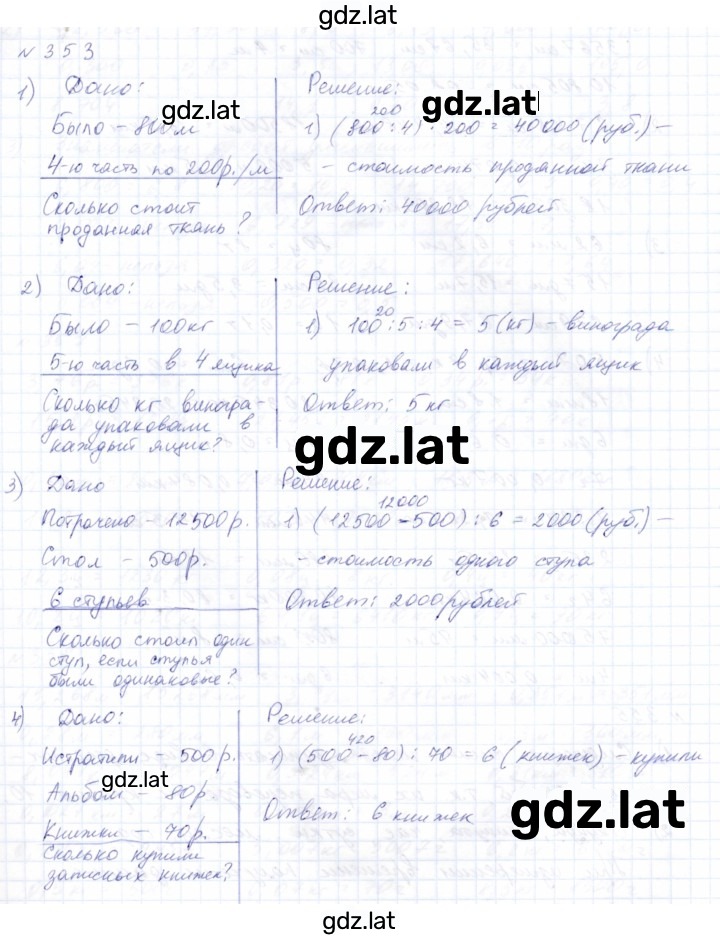 gdz.lat
N 353
1) Дано:
Было - 800м
4-ю часть по 200р./м
Сколько стоит
проданная ткань?
Решение:
200
1) (800:4) · 200 = 40000 (руб.) -
- стоимость проданной ткани
Ответ: 40000 рублей
gdz.lat
gdz.lat
2) Дано:
Было - 100кг
5-ю часть в 4 ящика
Сколько кг виногра-
да упаковали в
каждый ящик?
Решение:
20
1) 100:5:4 = 5 (кг) - винограда
упаковали в каждый ящик
Ответ: 5 кг
gdz.lat
3) Дано
Потрачено - 12500р.
Стол - 500р.
6 стульев
Сколько стоил один
стул, если стулья
были одинаковые?
Решение:
12000
1) (12500 - 500) : 6 = 2000 (руб.) -
- стоимость одного стула
Ответ: 2000 рублей
4) Дано:
Истратили - 500р.
Альбом - 80р.
Книжки - 70р.
Сколько купили
записных книжек?
Решение:
420
1) (500 - 80) : 70 = 6 (книжек) - купили
Ответ: 6 книжек
gdz.lat
gdz.lat
gdz.lat